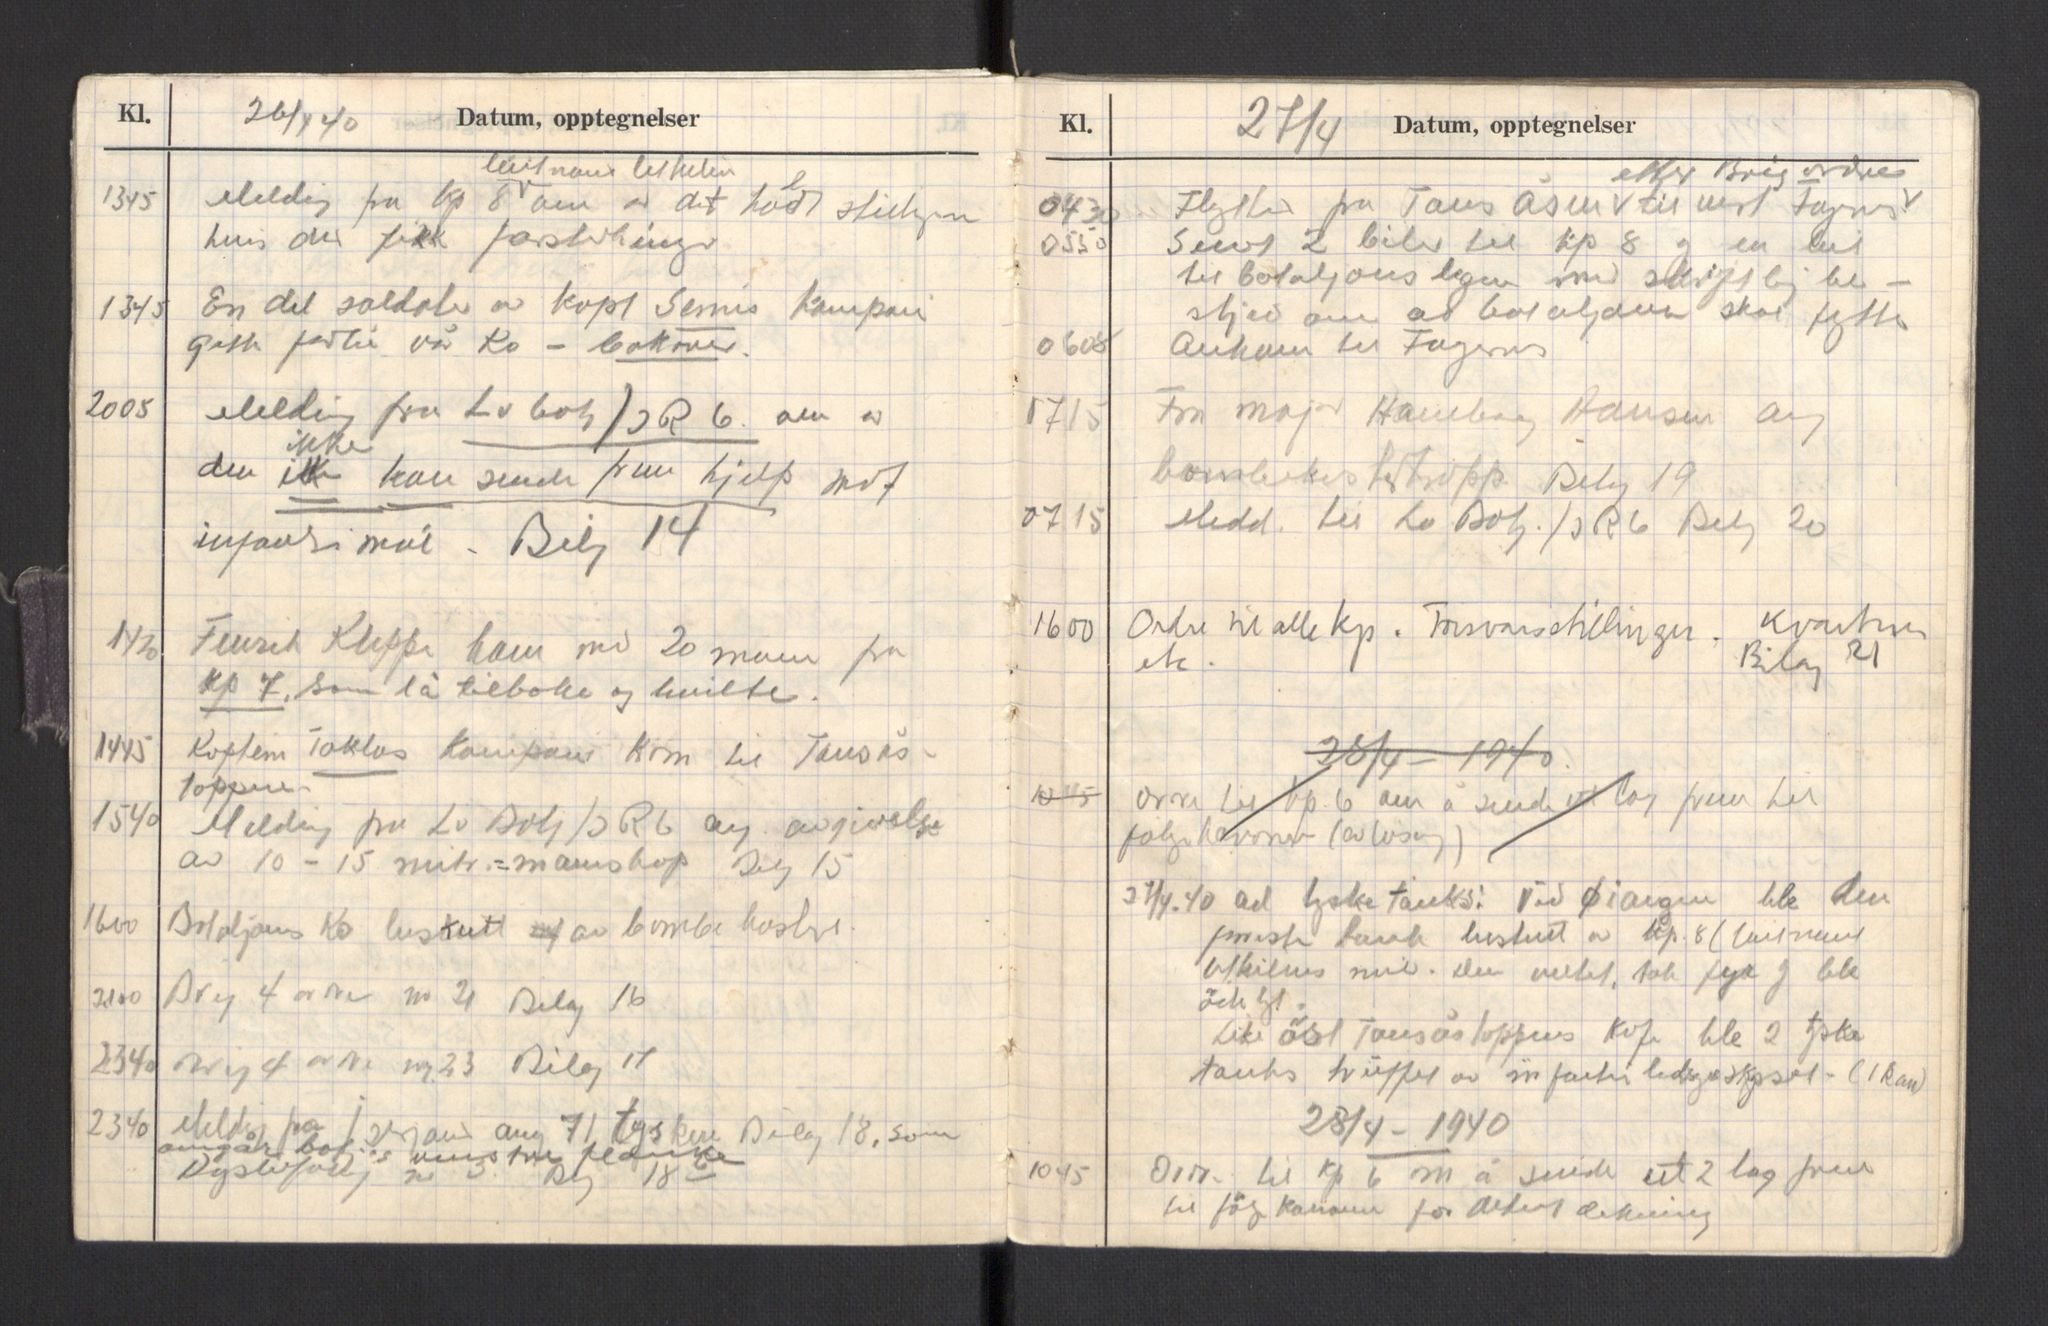 Kl. 26/4 40 Datum, opptegnelser
1345 Melding fra kp 8 om at det holdt stillingen
hvis det fikk forsterkninger
1345 En del soldater av kapt kompani
gikk forbi vår Ko – bakover.
2005 Melding fra Lv batj/JR 6. om at
ikke
den kan sende frem hjelp mot
infanteri mål – Bilag 14
1420 Fenrik Kleppe kom med 20 mann fra
kp 7. som lå tilbake og hvilte.
1445 Kaptein kompani kom til Tonsås-
toppen.
1540 Melding fra Lv Batj/JR 6 ang. avgivelse
av 10 – 15 mitr.=mannskap Bilag 15
1600 Bataljons Ko beskutt av bombekastere.
2100 Brig 4 ordre nr 21 Bilag 16
2340 Brig 4 ordre nr 23 Bilag 17
2340 Melding fra ang 71 tyskere Bilag 18, som
angår batj.s venstre flanke
nr 3. Bilag 18
Kl. 27/4 Datum, opptegnelser
etter Brig ordre
0430 Flyttet fra Tonsåsen til mot Fagernes
0550 Sendt 2 biler til kp 8 og en bil
til bataljonslegen med skriftlig be-
skjed om at bataljonen skal flytte
0608 Ankom til Fagernes
0715 Fra major Hansen ang
bombekastertropp Bilag 19
0715 Medd. til Lv Batj./JR 6 Bilag 20
1600 Ordre til alle kp. Forsvarsstillinger. Kvarterer
etc. Bilag 21
28/4 – 1940.
1045 Ordre til kp. 6 om å sende lag frem til
følgekanonen (avløsning)
27/4.40 ad tyske tanks: Ved Øiangen ble den
første tank beskutt av kp. 8 (løitnant
mitr. Den veltet, tok fyr og ble
ødelagt.
Like øst Tonsåstoppens Kafe ble 2 tyske
tanks truffet av infanteriledsageskyset – (1 kan)
28/4 – 1940
1045 Ordre til kp 6 om å sende ut 2 lag frem
til følgekanonen for dekning